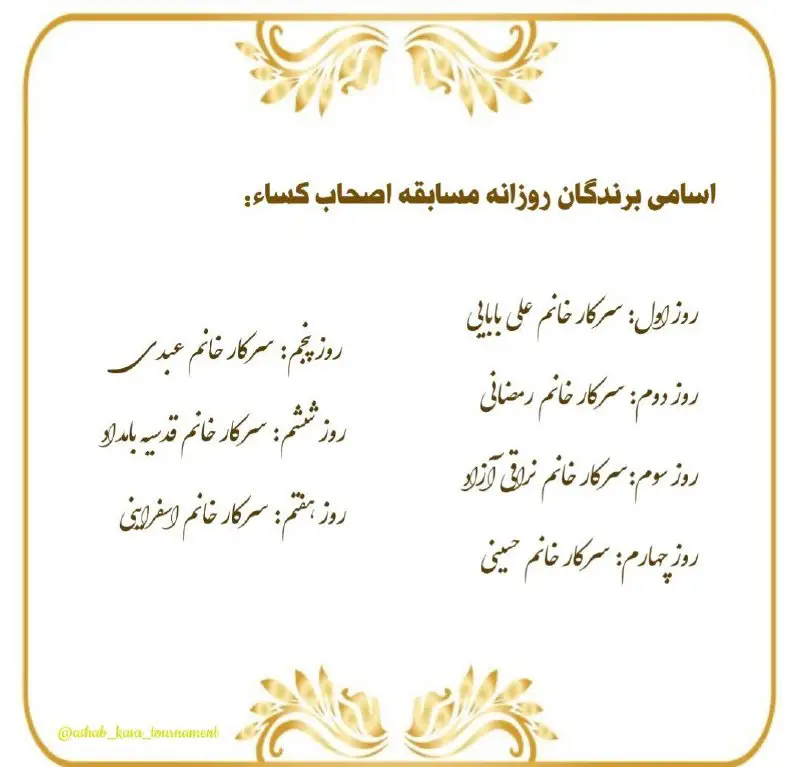 اسامی برندگان روزانه مسابقه اصحاب کساء:
روز اول: سرکار خانم علی بابایی
روز دوم: سرکار خانم رمضانی
روز سوم: سرکار خانم نراقی آزاد
روز چهارم: سرکار خانم حسینی
روز پنجم: سرکار خانم عبدی
روز ششم: سرکار خانم قدسیه بامداد
روز هفتم: سرکار خانم اسفراینی
@ashab_kasa_tournament